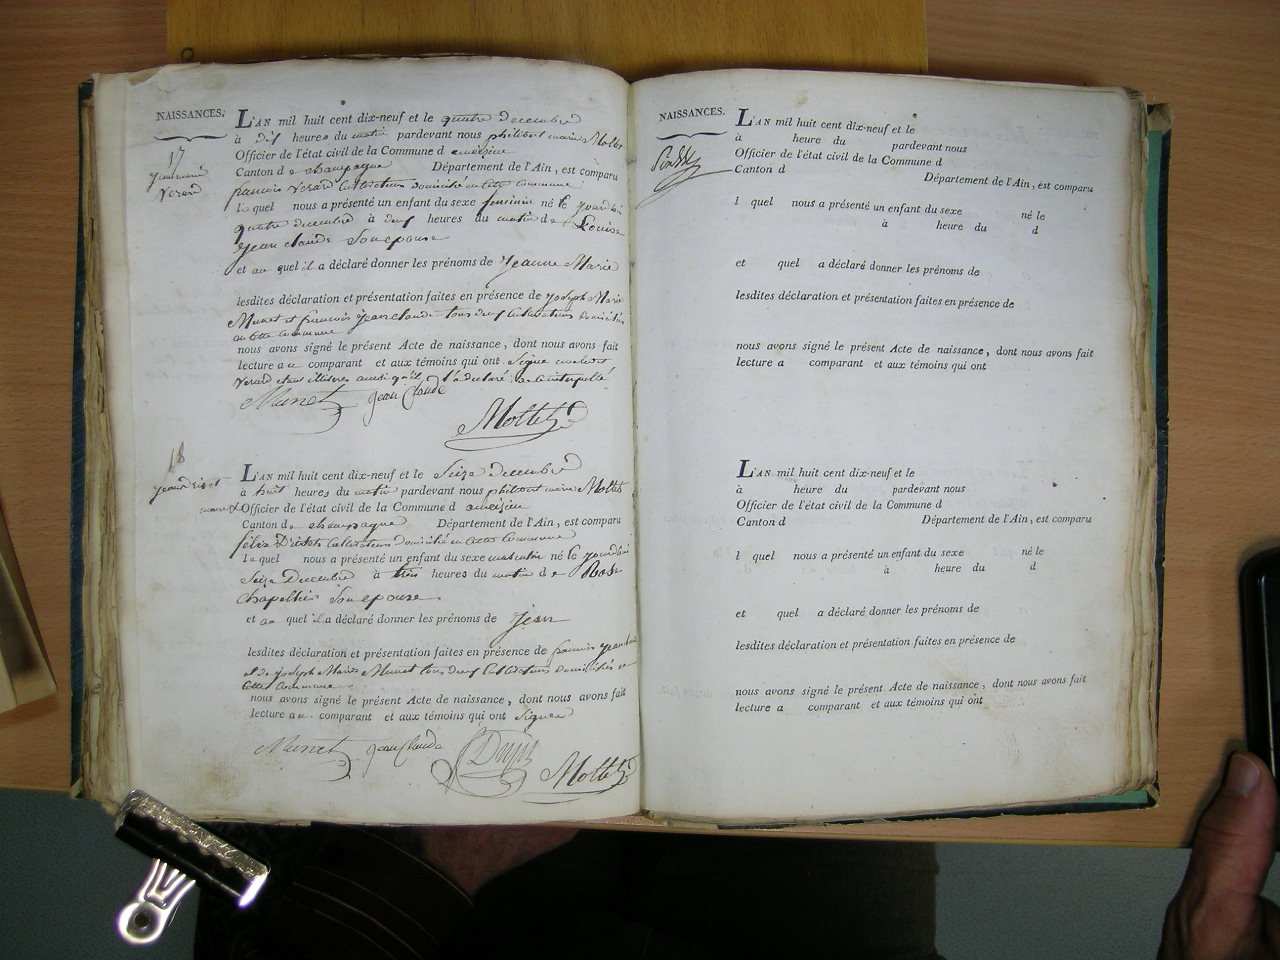 NAISSANCES.
17
jeanne marie
Verard
L'AN mil huit cent dix-neuf et le quatre decembre
à dix heures du matin pardevant nous philibert marie Mottet
Officier de l'état civil de la Commune d
Canton de champagne Département de l'Ain, est comparu
francois Verard Cultivateur domicilié en cette commune
lequel nous a présenté un enfant du sexe feminin né le jourdhui
quatre decembre à neuf heures du matin de Louise
jean claude Son epouse
et auquel il a déclaré donner les prénoms de Jeanne Marie
lesdites déclaration et présentation faites en présence de joseph Marie
Munet et francois jean claude tous deux Cultivateurs domiciliés
en cette commune
nous avons signé le présent Acte de naissance, dont nous avons fait
lecture au comparant et aux témoins qui ont Signé
Verard
Munet jean Claude
Mottet
18
L'AN mil huit cent dix-neuf et le Seize decembre
à huit heures du matin pardevant nous philibert marie Mottet
Officier de l'état civil de la Commune d
Canton de champagne Département de l'Ain, est comparu
felix Cultivateur domicilié en cette commune
lequel nous a présenté un enfant du sexe masculin né le jourdhui
Seize Decembre à trois heures du matin de Rose
chapellus Son epouse
et au quel il a déclaré donner les prénoms de jean
lesdites déclaration et présentation faites en présence de francois jean claude
et de joseph Marie Munet tous deux Cultivateurs domiciliés en
cette commune
nous avons signé le présent Acte de naissance, dont nous avons fait
lecture au comparant et aux témoins qui ont Signés
Munet jean Claude Mottet
NAISSANCES.
L'AN mil huit cent dix-neuf et le
à heure du pardevant nous
Officier de l'état civil de la Commune d
Canton d Département de l'Ain, est comparu
l quel nous a présenté un enfant du sexe né le
à heure du d
et quel a déclaré donner les prénoms de
lesdites déclaration et présentation faites en présence de
nous avons signé le présent Acte de naissance, dont nous avons fait
lecture a comparant et aux témoins qui ont
L'AN mil huit cent dix-neuf et le
à heure du pardevant nous
Officier de l'état civil de la Commune d
Canton d Département de l'Ain, est comparu
l quel nous a présenté un enfant du sexe né le
à heure du d
et quel a déclaré donner les prénoms de
lesdites déclaration et présentation faites en présence de
nous avons signé le présent Acte de naissance, dont nous avons fait
lecture a comparant et aux témoins qui ont